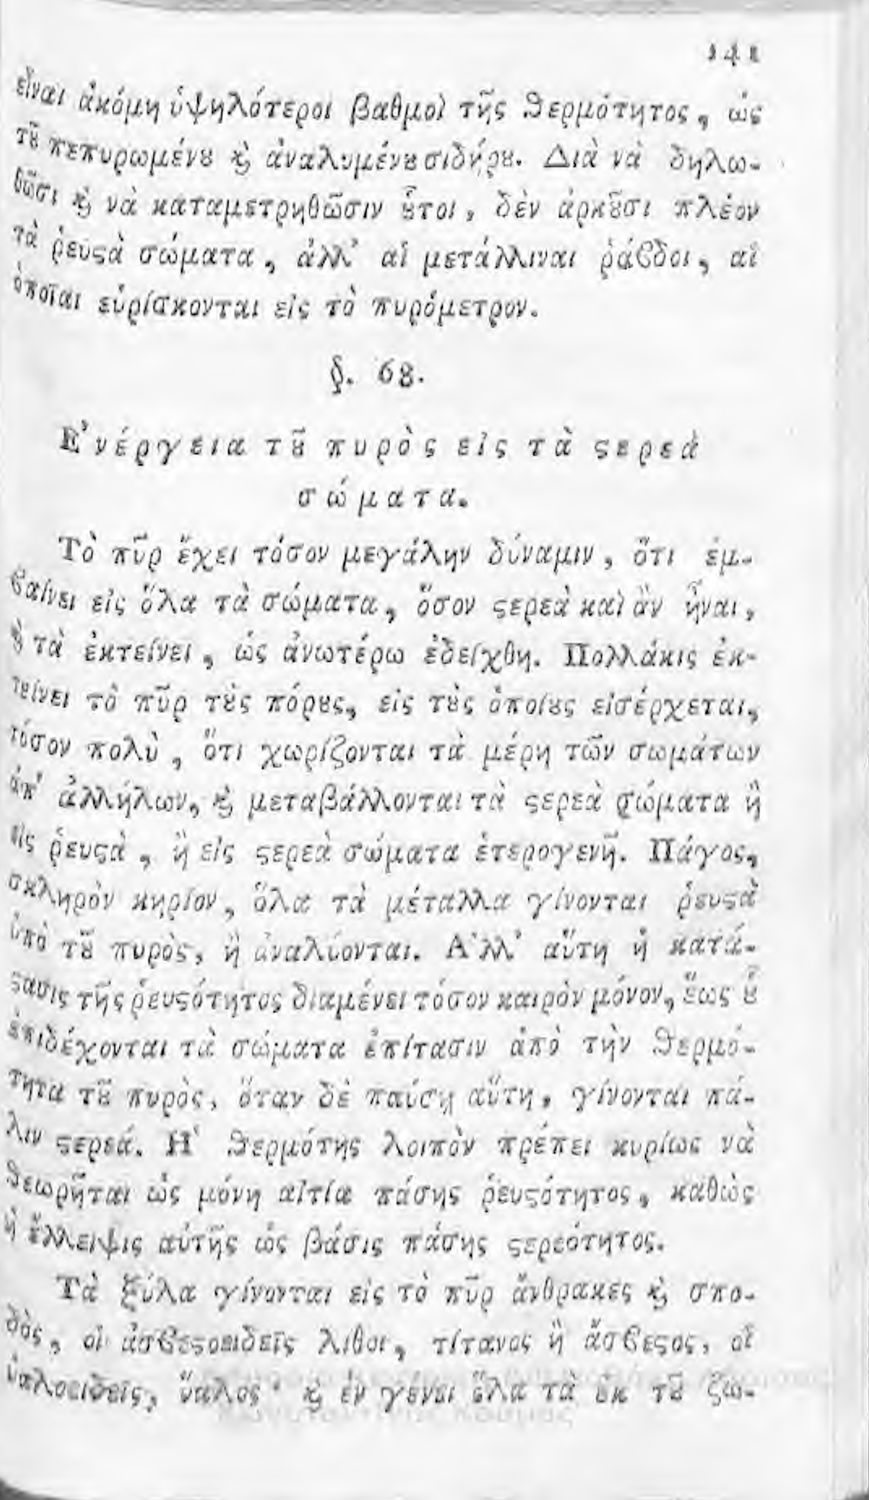 141
εἶναι ἀκόμη ὑψηλότεροι βαθμοὶ τῆς ϑερμότητος, ὡς
τȣ͂ πεπυρωμένȣ ϗ̀ ἀναλυμένȣ σιδήρȣ. Διὰ νὰ δηλω-
θῶσι ϗ̀ νὰ καταμετρηθῶσιν ȣ̃τοι, δὲν ἀρκȣ͂σι πλέον
τὰ ῥευϛὰ σώματα, ἀλλ' αἱ μετάλλιναι ῥάϐδοι, αἱ
ὁποῖαι εὑρίσκονται εἰς τὸ πυρόμετρον.
§. 68.
Ε᾿νέργεια τȣ͂ πυρὸς εἰς τὰ ϛερεὰ
σώματα.
Τὸ πῦρ ἔχει τόσον μεγάλην δύναμιν, ὅτι ἐμ-
ϐαίνει εἰς ὅλα τὰ σώματα, ὅσον ϛερεὰ καὶ ἂν ἦναι,
ϗ̀ τὰ ἐκτείνει, ὡς ἀνωτέρω ἐδείχθη. Πολλάκις ἐκ-
τείνει τὸ πῦρ τȣ̀ς πόρȣς, εἰς τȣ̀ς ὁποίȣς εἰσέρχεται,
τόσον πολὺ, ὅτι χωρίζονται τὰ μέρη τῶν σωμάτων
ἀπ' ἀλλήλων, ϗ̀ μεταβάλλονται τὰ ϛερεὰ σώματα ἢ
εἰς ῥευϛὰ, ἢ εἰς ϛερεὰ σώματα ἑτερογενῆ. Πάγος,
σκληρὸν κηρίον, ὅλα τὰ μέταλλα γίνονται ῥευϛὰ
ὑπὸ τȣ͂ πυρὸς, ἢ ἀναλύονται. Α᾿λλ' αὕτη ἡ κατά-
ϛασις τῆς ῥευϛότητος διαμένει τόσον καιρὸν μόνον, ἕως ȣ̃
ἐπιδέχονται τὰ σώματα ἐπίτασιν ἀπὸ τὴν ϑερμό-
τητα τȣ͂ πυρὸς, ὅταν δὲ παύσῃ αὕτη, γίνονται πά-
λιν ϛερεά. Η῾ ϑερμότης λοιπὸν πρέπει κυρίως νὰ
ϑεωρῆται ὡς μόνη αἰτία πάσης ῥευϛότητος, καθὼς
ἡ ἔλλειψις αὐτῆς ὡς βάσις πάσης ϛερεότητος.
Τὰ ξύλα γίνονται εἰς τὸ πῦρ ἄνθρακες ϗ̀ σπο-
δὸς, οἱ ἀσϐεϛοειδεῖς λίθοι, τίτανος ἢ ἄσϐεϛος, οἱ
ὑαλοειδεῖς, ὕαλος· ϗ̀ ἐν γένει ὅλα τὰ ἐκ τȣ͂ ζω-